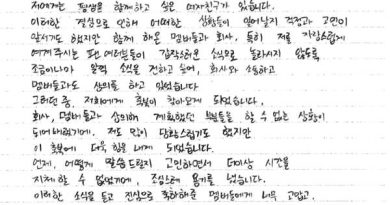 저에게는 평생을 함께하고 싶은 여자친구가 있습니다.
이러한 결심으로 인해 어떠한 상황들이 일어날지 걱정과 고민이
앞서기도 했지만 함께 해온 멤버들과 회사, 특히 저를 자랑스럽게
여겨주시는 팬 여러분들이 갑작스러운 소식으로 놀라시지 않도록
조금이나마 일찍 소식을 전하고 싶어, 회사와 소통하고
멤버들과도 상의를 하고 있었습니다
그러던 중, 저희에게 축복이 찾아오게 되었습니다.
회사, 멤버들과 상의해 계획했던 부분들을 할 수 없는 상황이
되어버렸기에, 저도 많이 당황스럽기도 했지만
이 축복에 더욱 힘을 내게 되었습니다.
언제, 어떻게 말씀드릴지 고민하면서 더이상 시간을
지체할 수 없었기에, 조심스레 용기를 냈습니다.
이러한 소식을 듣고 진심으로 축하해준 멤버들에게 너무 고맙고,